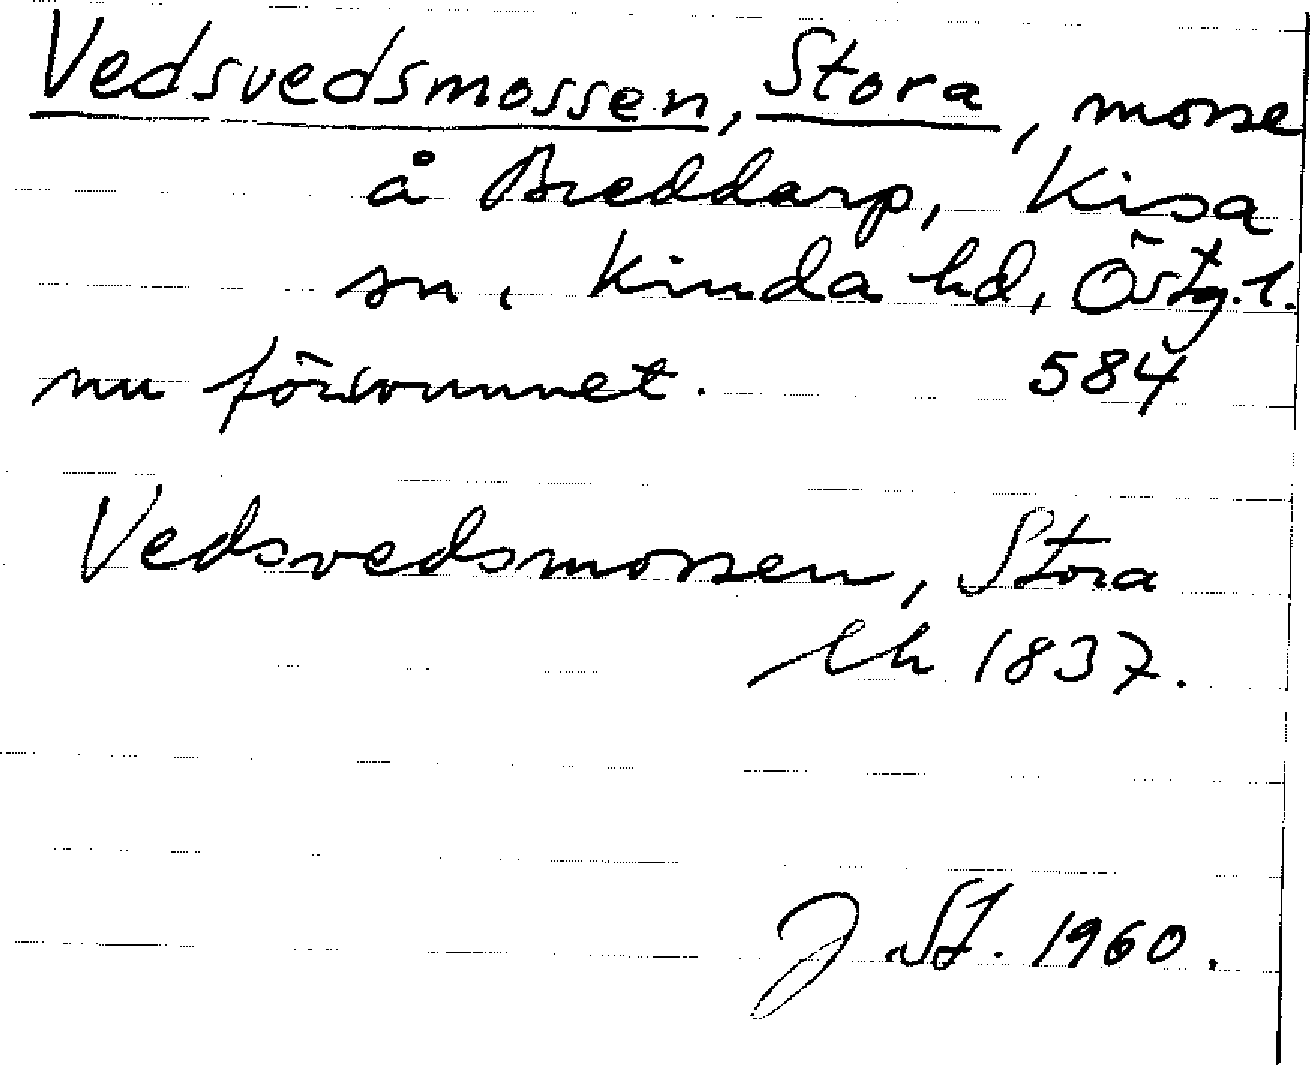 Vedsvedsmossen, Stora, mosse
å Breddarp, Kisa
sn, Kinda hd, Östg.l.
nu försvunnet. 584
Vedsvedsmossen, Stora
lh 1837.
J. St. 1960.